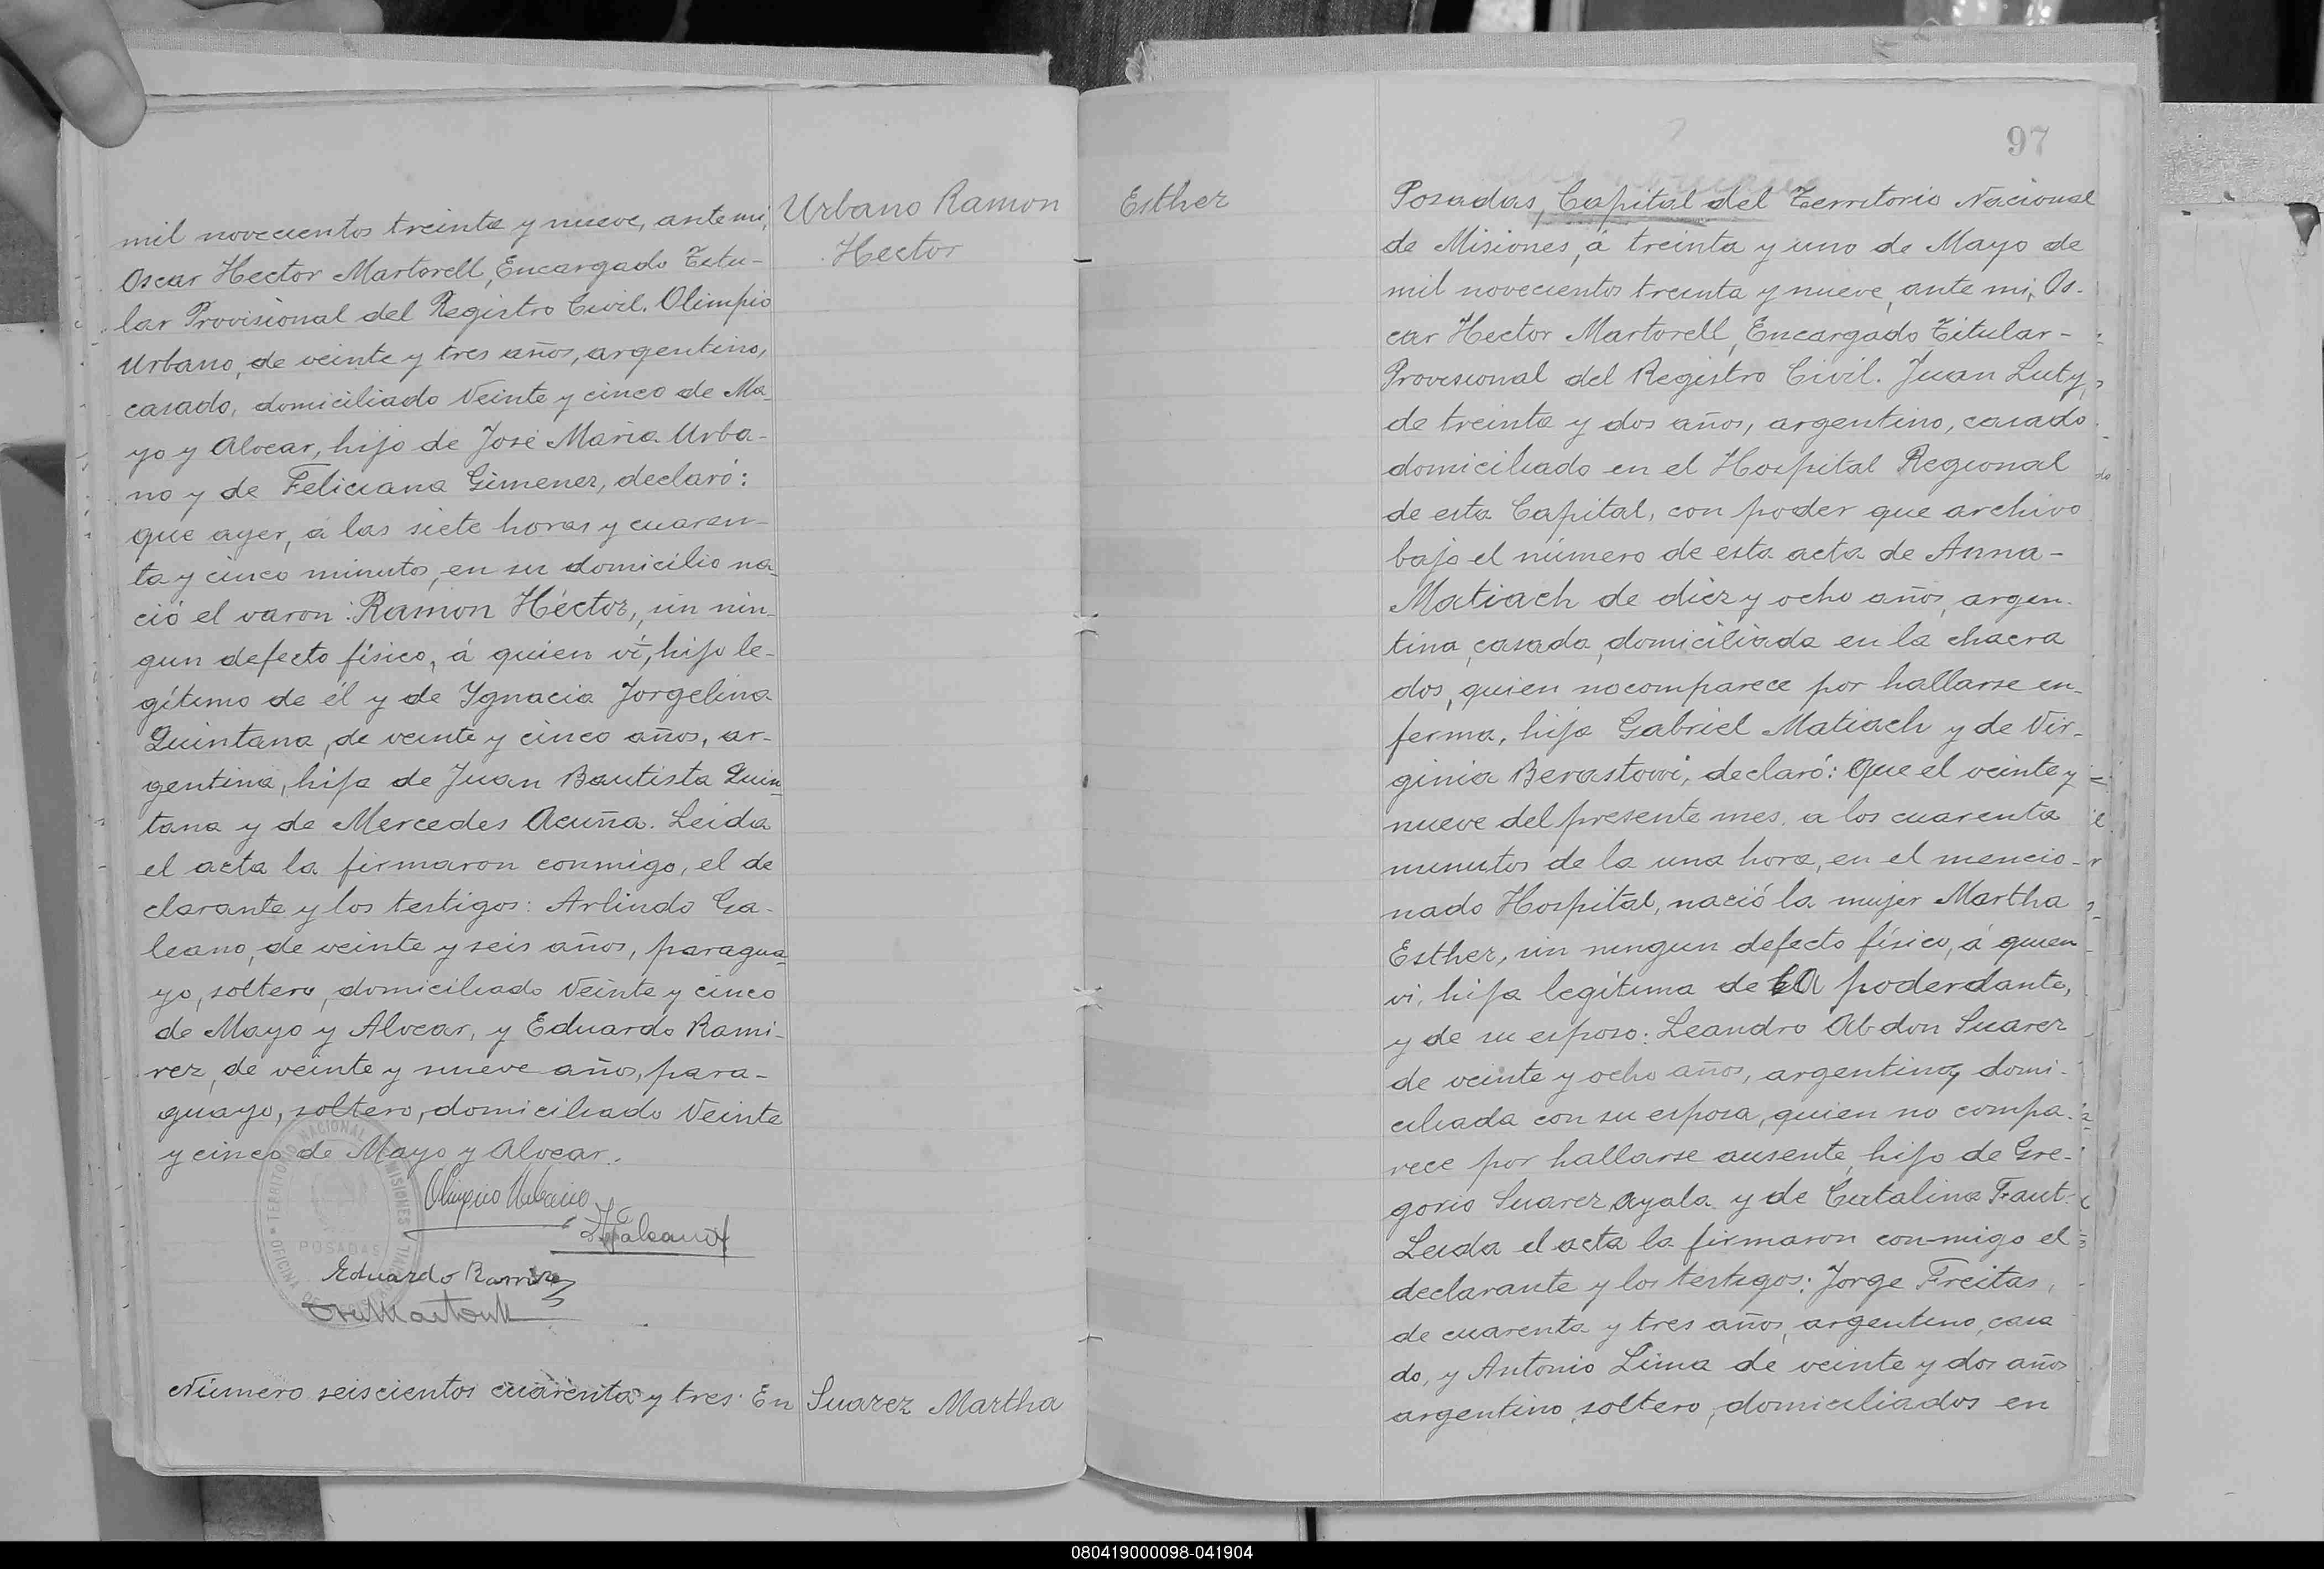 mil novecientos treinta y nueve, ante mi,
Oscar Hector Martorell, Encargado Titu-
lar Provisional del Registro Civil. Olimpio
Urbano, de veinte y tres años, argentino,
casado, domiciliado Veinte y cinco de Ma-
yo y Alvear, hijo de José Maria Urba-
no y de Feliciana Gimenez, declaró:
que ayer, a las siete horas y cuaren-
ta y cinco minutos, en su domicilio na-
ció el varon: Ramon Héctor, sin nin-
gun defecto físico, á quien ví, hijo le-
gítimo de él y de Ygnacia Jorgelina
Quintana, de veinte y cinco años, ar-
gentina, hija de Juan Bautista Quin-
tana y de Mercedes Acuña. Leida
el acta la firmaron conmigo, el de
clarante y los testigos: Arlindo Ga-
leano, de veinte y seis años, paragua-
yo, soltero, domiciliado Veinte y cinco
de Mayo y Alvear, y Eduardo Rami-
rez, de veinte y nueve años, para-
guayo, soltero, domiciliado Veinte
y cinco de Mayo y Alvear.
Olimpio Urbano
A Galeano
Eduardo Ramirez
TERRITORIO NACIONAL MISIONES
POSADAS
OFICINA
Número seiscientos cuarenta y tres. En
Urbano Ramon
Hector
Suarez Martha
Esther
97
Posadas, Capital del Territorio Nacional
de Misiones, á treinta y uno de Mayo de
mil novecientos treinta y nueve, ante mi, Os-
car Hector Martorell, Encargado Titular-
Provisional del Registro Civil. Juan Luty,
de treinta y dos años, argentino, casado
domiciliado en el Hospital Regional
de esta Capital, con poder que archivo
bajo el número de esta acta de Anna-
Matiach de diez y ocho años, argen-
tina, casada, domiciliada en la chacra
dos, quien no comparece por hallarse en-
ferma, hija Gabriel Matiach y de Vir-
ginia Berastowi, declaró: Que el veinte y
nueve del presente mes. a los cuarenta
minutos de la una hora, en el mencio-
nado Hospital, nació la mujer Martha
Esther, sin ningun defecto físico, á quien
vi, hija legítima de la poderdante,
y de su esposo: Leandro Abdon Suarez
de veinte y ocho años, argentino, domi-
ciliada con su esposa, quien no compa-
rece por hallarse ausente, hijo de Gre-
gorio Suarez Ayala y de Catalina Faut.
Leida el acta la firmaron conmigo el
declarante y los testigos: Jorge Freitas,
de cuarenta y tres años, argentino, casa
do, y Antonio Lima de veinte y dos años
argentino, soltero, domiciliados en
080419000098-041904